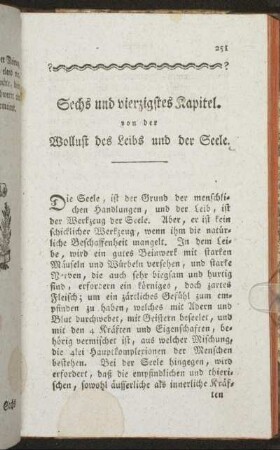 251
Sechs und vierzigstes Kapitel.
von der
Wollust des Leibs und der Seele.
Die Seele, ist der Grund der menschli-
chen Handlungen, und der Leib, ist
der Werkzeug der Seele. Aber, er ist kein
schicklicher Werkzeug, wenn ihm die natür-
liche Beschaffenheit mangelt. In dem Lei-
be, wird ein gutes Beinwerk mit starken
Mäuseln und Würbeln versehen, und starke
Nerven, die auch sehr biegsam und hurtig
sind, erfordern ein körniges, doch zartes
Fleisch; um ein zärtliches Gefühl zum em-
pfinden zu haben, welches mit Adern und
Blut durchwebet, mit Geistern beseelet, und
mit den 4 Kräften und Eigenschaften, be-
hörig vermischet ist, aus welcher Mischung,
die 4lei Hauptkomplexionen der Menschen
bestehen. Bei der Seele hingegen, wird
erfordert, daß die empfindlichen und thieri-
schen, sowohl äusserliche als innerliche Kräf-
ten
Sechs